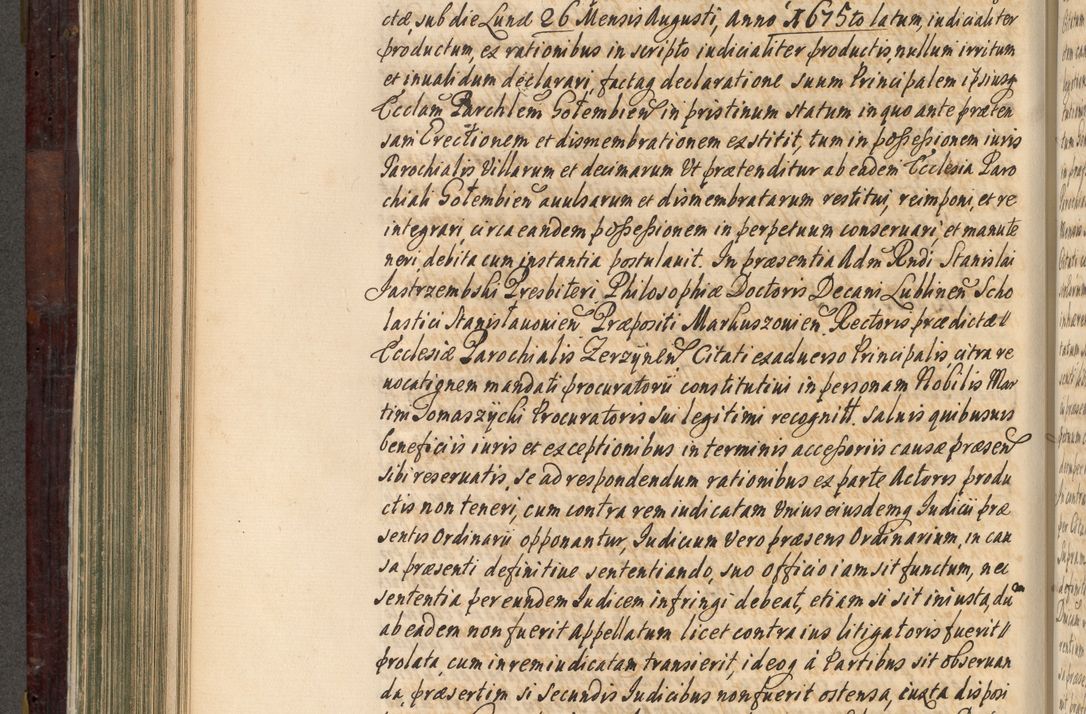 ctæ, sub die Lunæ 26 Mensis Augusti, Anno 1675to latum, iudicialiter
productum, ex rationibus in scripto iudicialiter productis, nullum irritum
et inualidum declarari, factaq declaratione suum Principalem ipsiusq
Ecclam Parchlem Gołembien in pristinum statum in quo ante præten
sam Erectionem et dismembrationem exstitit, tum in possessionem iuris
Parochialis Villarum et decimarum Vt prætenditur ab eadem Ecclesia Paro
chiali Gołembien auulsarum et dismembratarum restitui, reimponi, et re
integrari, circa eandem possessionem in perpetuum conseruari, et manute
neri, debita cum instantia postulauit. In præsentia Adm Rndi Stanislai
Jastrzembski Presbiteri, Philosophiæ Doctoris Decani Lublinen Scho
lastici Stanislauouien, Præpositi Markuszouien, Rectoris prædictæ
Ecclesiæ Parochialis Zerzynen Citati ex aduerso Principalis, citra re
uocationem mandati procuratorii constitutiui in personam Nobilis Mar
tini Tomaszycki Procuratoris sui legitimi recognitt. saluis quibusuis
beneficiis iuris et exceptionibus in terminis accessoriis causæ præsen
sibi reseruatis, se ad respondendum rationibus ex parte Actoris produ
ctis non teneri, cum contra rem iudicatam Vnius eiusdemq Iudicii præ
sentis Ordinarii opponantur, Iudicium Vero præsens Ordinarium, in cau
sa præsenti definitiue sententiando, suo officio iam sit functum, nec
sententia per eundem Iudicem infringi debeat, etiam si sit iniusta, du
ab eadem non fuerit Appellatum licet contra ius litigatoris fuerit
prolata, cum in rem iudicatam transierit, ideoq á Partibus sit obseruan
da, præsertim si Secundis Iudicibus non fuerit ostensa, iuxta disposi